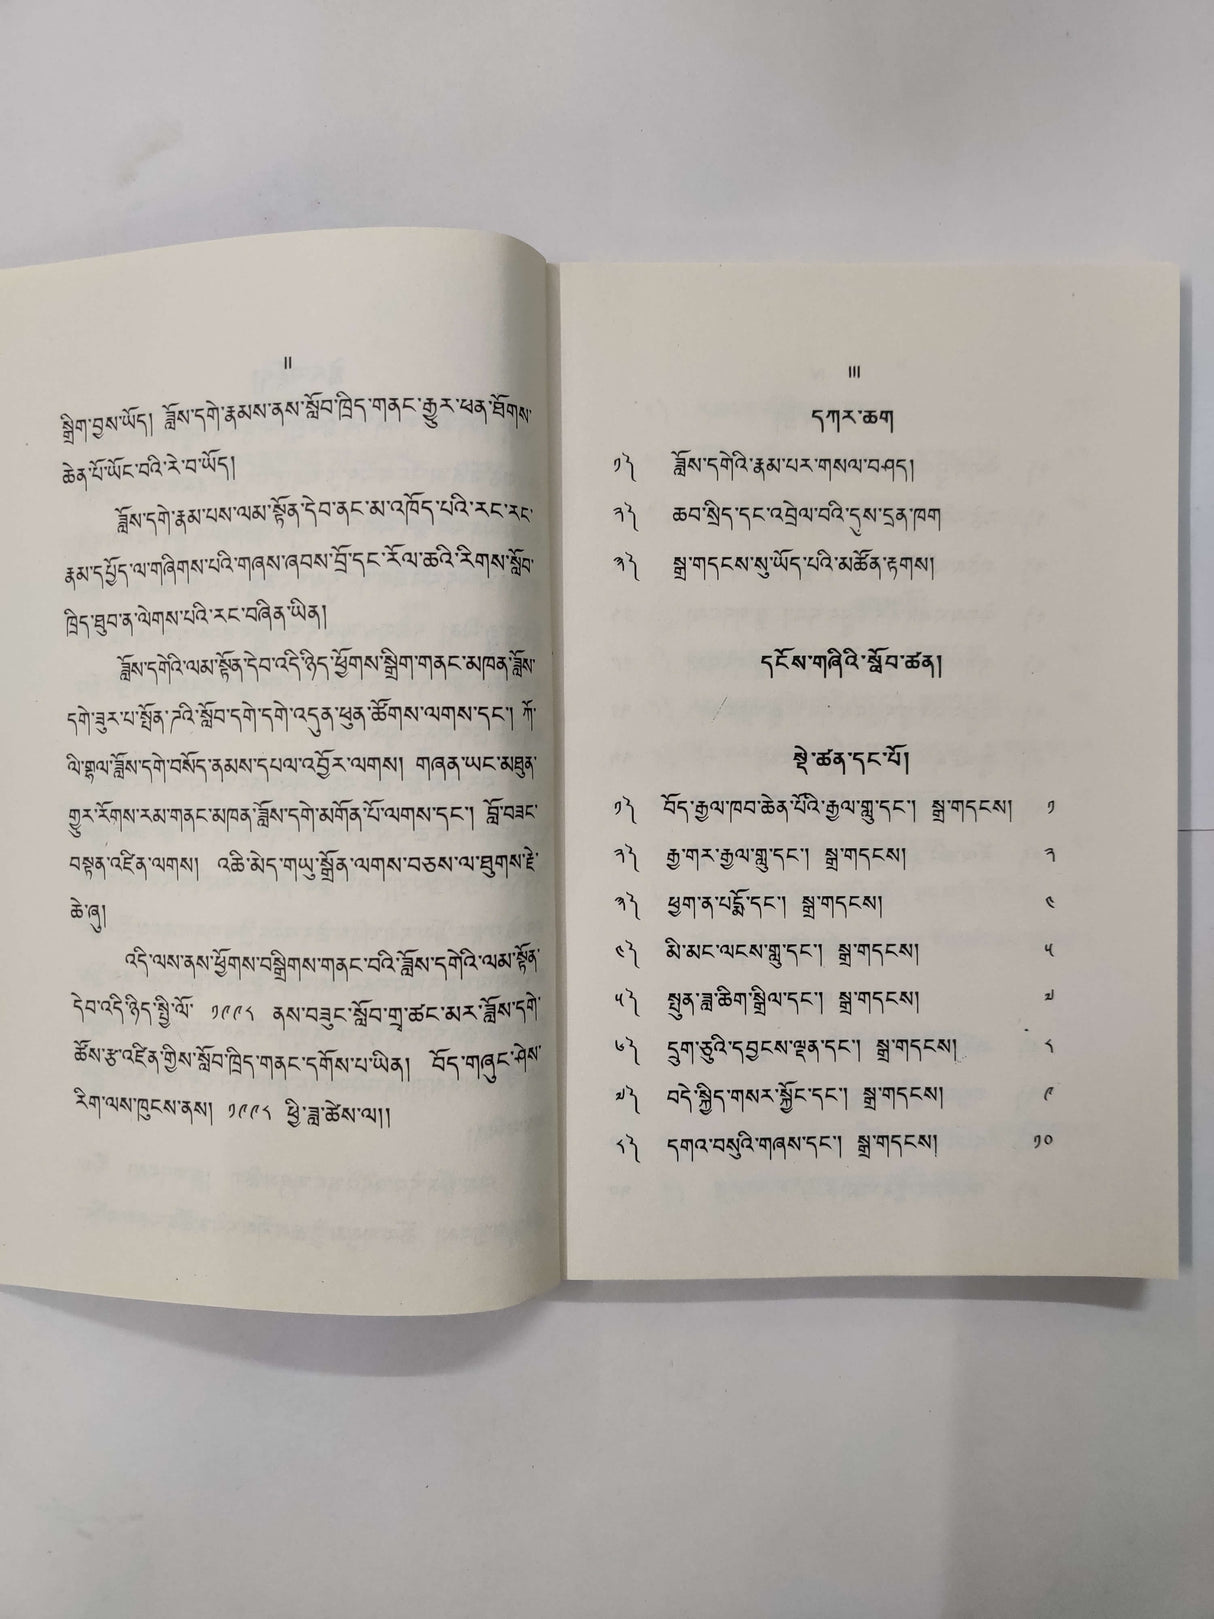 II
སྒྲིག་བྱས་ཡོད། ཟློས་དགེ་རྣམས་ནས་སློབ་ཁྲིད་གནང་རྒྱུར་ཕན་ཐོགས་
ཆེན་པོ་ཡོང་བའི་རེ་བ་ཡོད།
ཟློས་དགེ་རྣམ་པས་ལམ་སྟོན་དེབ་ནང་མ་འཁོད་པའི་རང་རང་
རྣམ་དཔྱོད་ལ་གཞིགས་པའི་གཞས་ཞབས་བྲོ་དང་རོལ་ཆའི་རིགས་སློབ་
ཁྲིད་ཐུབ་ན་ལེགས་པའི་རང་བཞིན་ཡིན།
ཟློས་དགེའི་ལམ་སྟོན་དེབ་འདི་ཉིད་ཕྱོགས་སྒྲིག་གནང་མཁན་ཟློས་
དགེ་ཟུར་པ་སྤོན་ཊའི་སློབ་དགེ་དགེ་འདུན་ཕུན་ཚོགས་ལགས་དང་། ཀོ་
ལི་གྷལ་ཟློས་དགེ་བསོད་ནམས་དཔལ་འབྱོར་ལགས། གཞན་ཡང་མཐུན་
གྱུར་རོགས་རམ་གནང་མཁན་ཟློས་དགེ་མགོན་པོ་ལགས་དང་། བློ་བཟང་
བསྟན་འཛིན་ལགས། འཆི་མེད་གཡུ་སྒྲོན་ལགས་བཅས་ལ་ཐུགས་རྗེ་
ཆེ་ཞུ།
འདི་ལས་ནས་ཕྱོགས་བསྒྲིགས་གནང་བའི་ཟློས་དགེའི་ལམ་སྟོན་
དེབ་འདི་ཉིད་སྤྱི་ལོ་ ༡༩༩༨ ནས་བཟུང་སློབ་གྲྭ་ཚང་མར་ཟློས་དགེ་
ཚོས་རྩ་འཛིན་གྱིས་སློབ་ཁྲིད་གནང་དགོས་པ་ཡིན། བོད་གཞུང་ཤེས་
རིག་ལས་ཁུངས་ནས། ༡༩༩༨ ཕྱི་ཟླ་ཚེས་ལ།།
III
དཀར་ཆག
༡༽ ཟློས་དགེའི་རྣམ་པར་གསལ་བཤད།
༢༽ ཆབ་སྲིད་དང་འབྲེལ་བའི་དུས་དྲན་ཁག
༣༽ སྒྲ་གདངས་སུ་ཡོད་པའི་མཚོན་རྟགས།
དངོས་གཞིའི་སློབ་ཚན།
སྡེ་ཚན་དང་པོ།
༡༽ བོད་རྒྱལ་ཁབ་ཆེན་པོའི་རྒྱལ་གླུ་དང་། སྒྲ་གདངས། ༡
༢༽ རྒྱ་གར་རྒྱལ་གླུ་དང་། སྒྲ་གདངས། ༢
༣༽ ཕྱག་ན་པདྨོ་དང་། སྒྲ་གདངས། ༤
༤༽ མི་མང་ལངས་གླུ་དང་། སྒྲ་གདངས། ༥
༥༽ སྤུན་ཟླ་ཆིག་སྒྲིལ་དང་། སྒྲ་གདངས། ༧
༦༽ དྲུག་ཅུའི་དབྱངས་ལྡན་དང་། སྒྲ་གདངས། ༨
༧༽ བདེ་སྐྱིད་གསར་སྐྱོང་དང་། སྒྲ་གདངས། ༩
༨༽ དགའ་བསུའི་གཞས་དང་། སྒྲ་གདངས། ༡༠